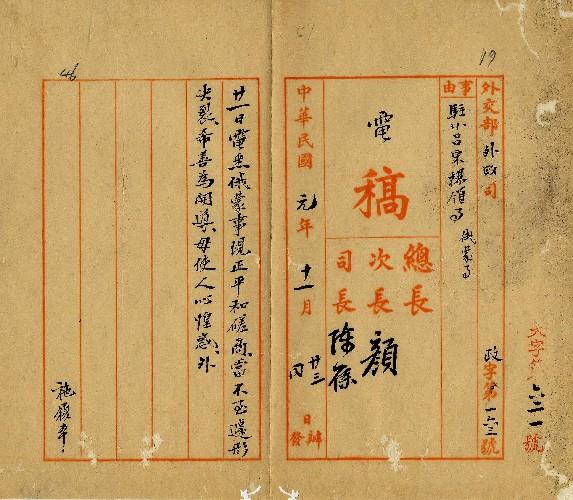 19
外交部外政司
政字第一六三號
事由
駐小呂宋 領事 俄蒙事
電稿
總長
次長 顏
司長 陳籙
中華民國元年十一月廿三日辦
發
六二一號
46
廿一日電悉俄蒙事現正平和磋商當不至遽形
決裂希善為開導毋使人心惶惑外